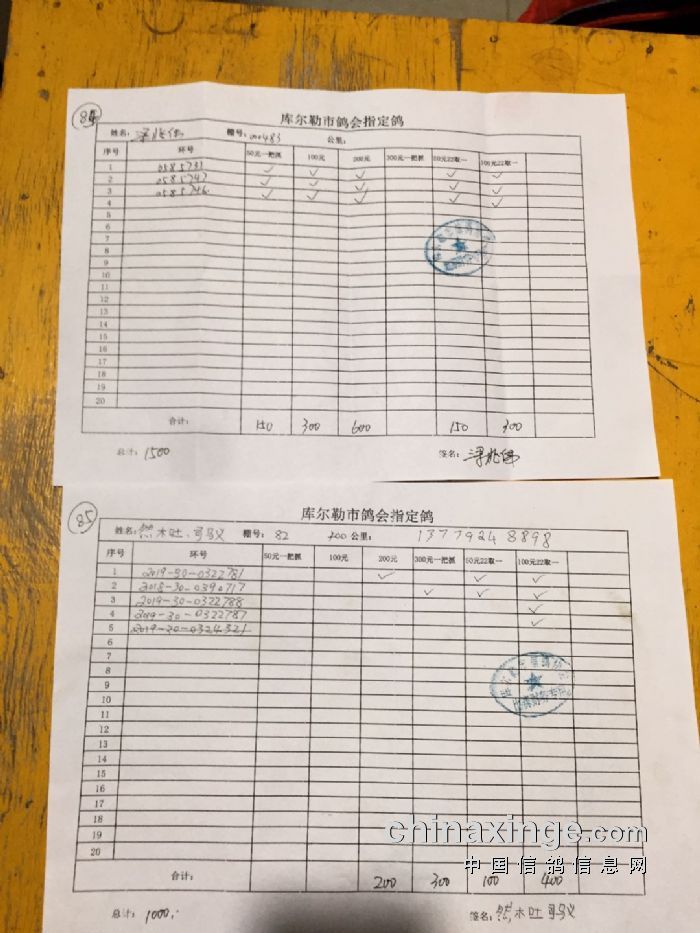 84
库尔勒市鸽会指定鸽
姓名: 梁兆伟 棚号: 000483 公里:
序号 环号 50元一把抓 100元 200元 300元一把抓 50元22取一 100元22取一
1 0585731 ✓ ✓ ✓ ✓ ✓
2 0585747 ✓ ✓ ✓ ✓ ✓
3 0585746 ✓ ✓ ✓ ✓ ✓
4
5
6
7
8
9
10
11
12
13
14
15
16
17
18
19
20
合计: 150 300 600 150 300
总计: 1500 签名: 梁兆伟
85
库尔勒市鸽会指定鸽
姓名: 然木吐、司马义 棚号: 82 200公里: 13779248898
序号 环号 50元一把抓 100元 200元 300元一把抓 50元22取一 100元22取一
1 2019-30-0322781 ✓ ✓ ✓
2 2018-30-0390717 ✓ ✓ ✓
3 2019-30-0322788 ✓
4 2019-30-0322787 ✓
5 2019-30-0324321
6
7
8
9
10
11
12
13
14
15
16
17
18
19
20
合计: 200 300 100 400
总计: 1000. 签名: 然木吐司马义
chinaxinge.com
中国信鸽信息网